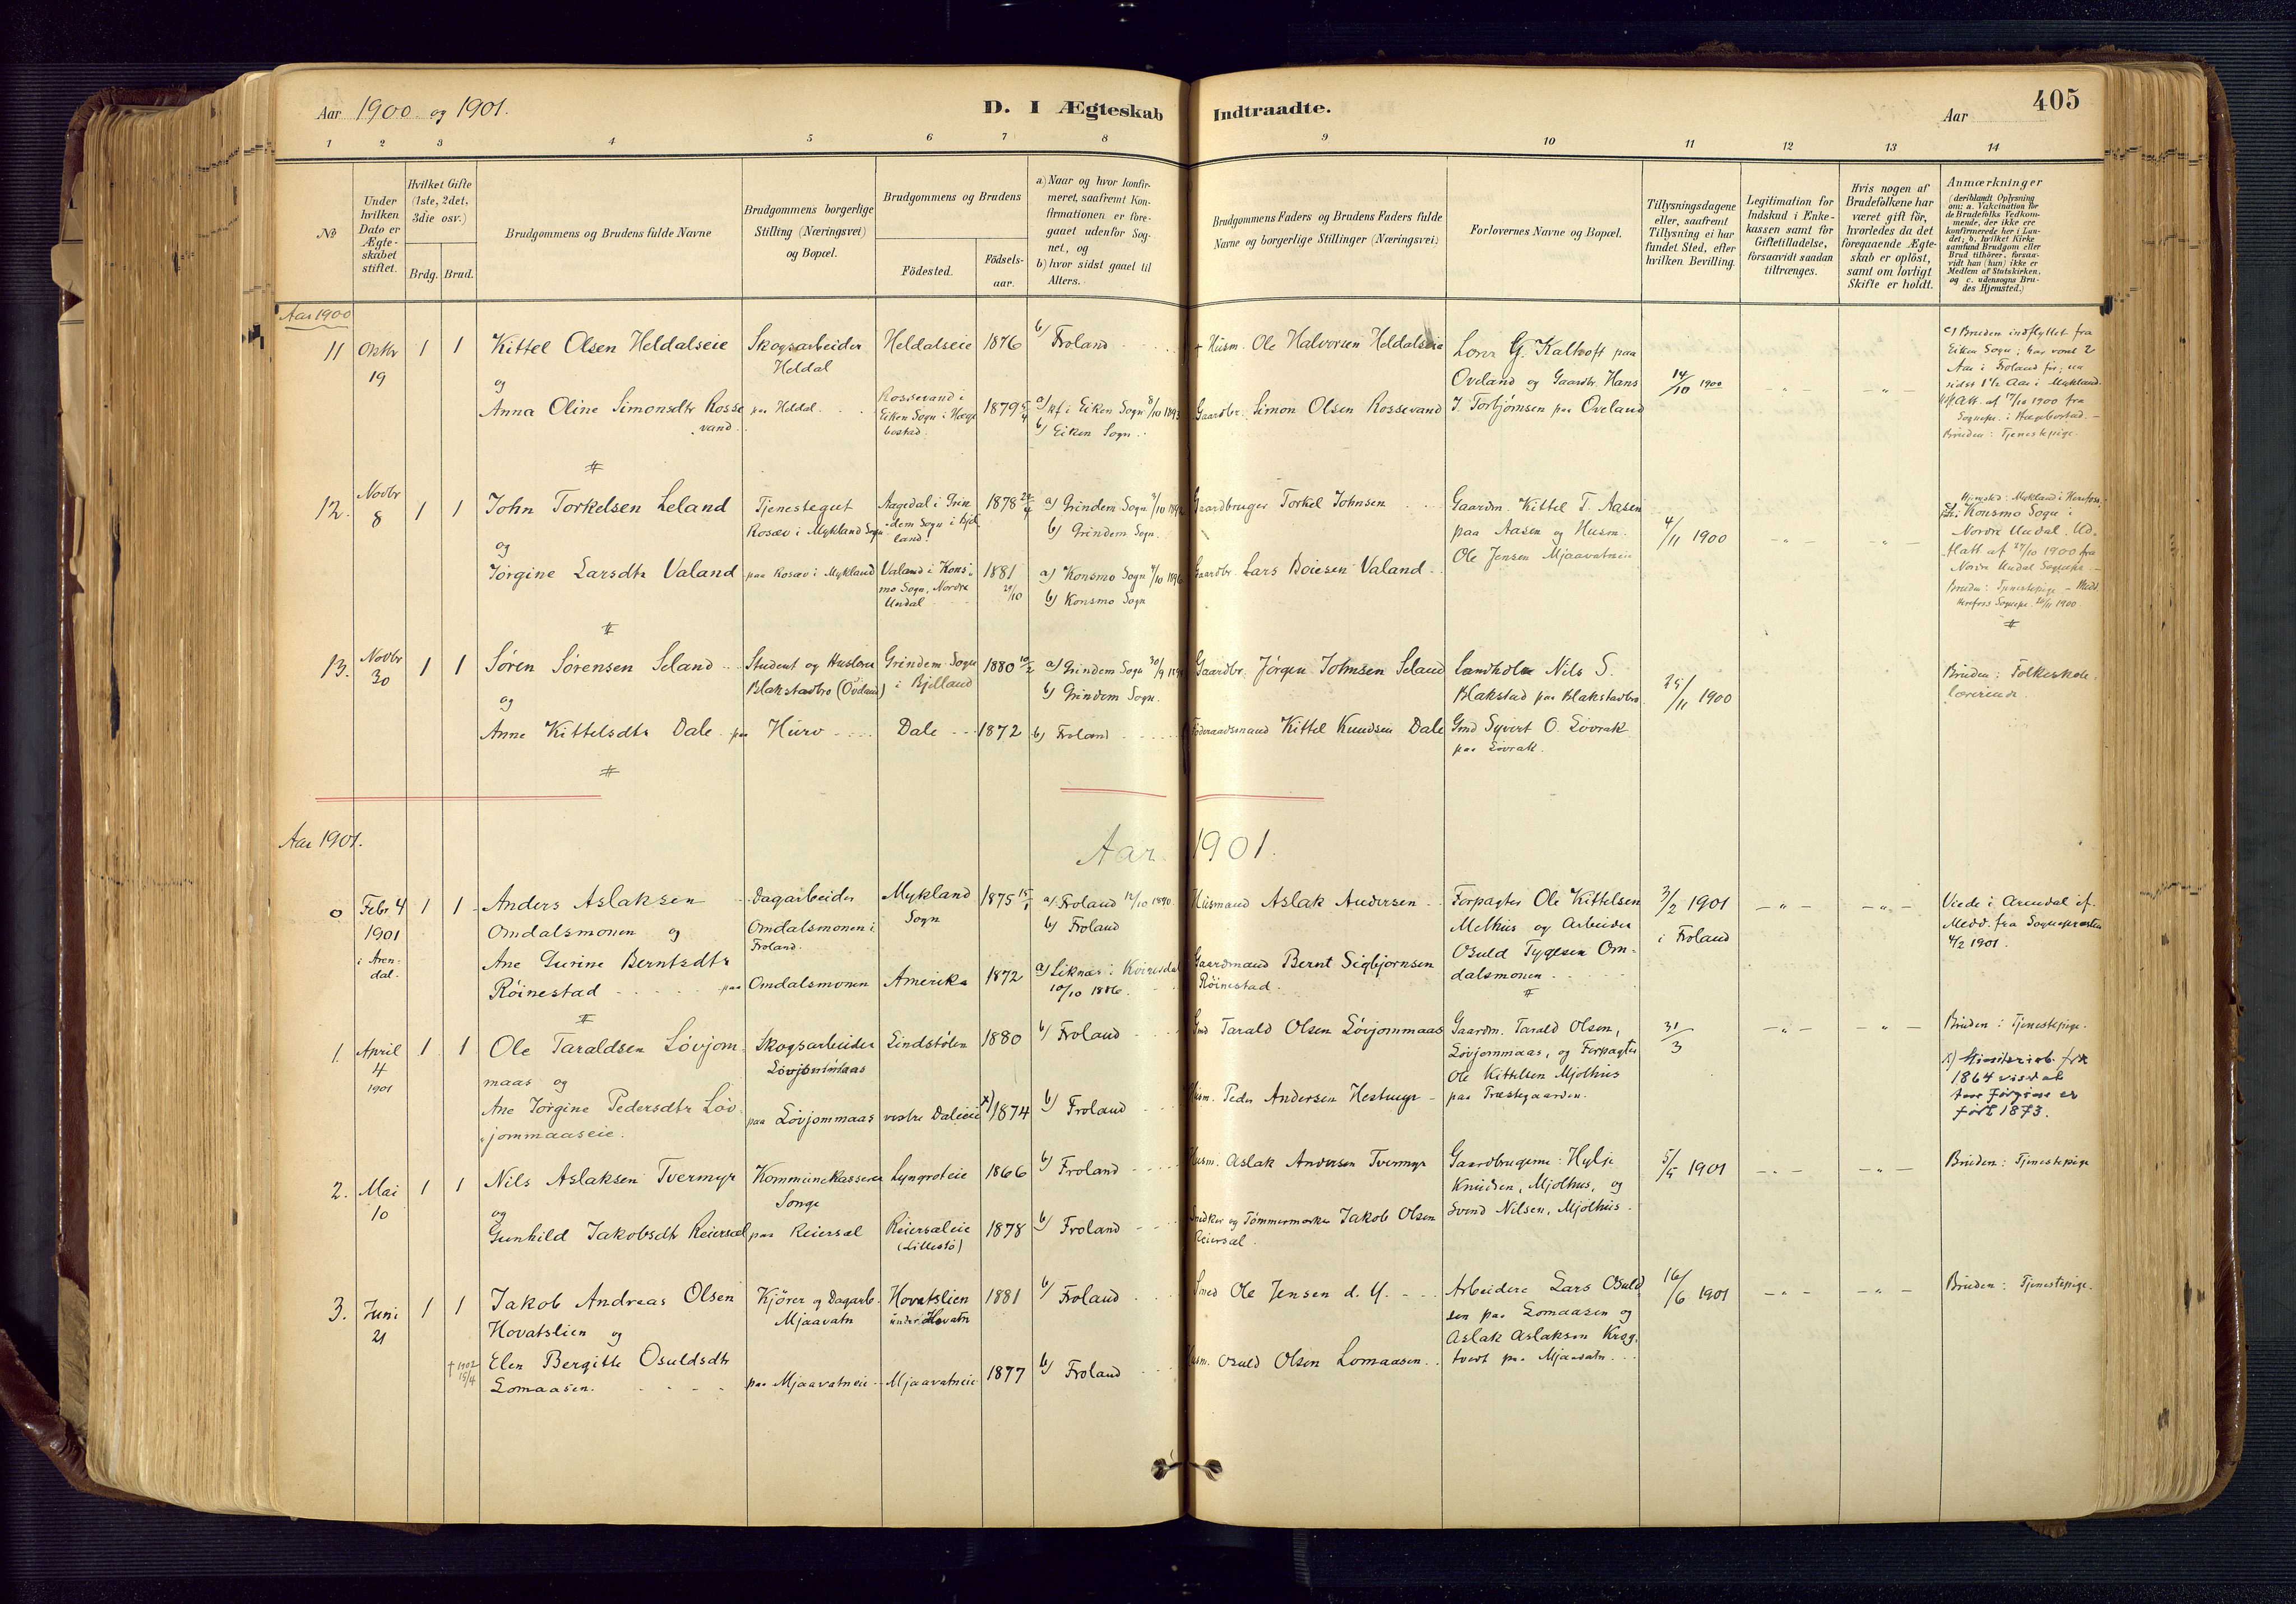 Aar 1900 og 1901.
D. I Ægteskab
Indtraadte.
Aar
405
1 2 3 4 5 6 7 8 9 10 11 12 13 14
No
Under hvilken Dato er Ægteskabet stiftet.
Hvilket Gifte (1ste, 2det, 3die osv.)
Brdg. Brud.
Brudgommens og Brudens fulde Navne
Brudgommens borgerlige Stilling (Næringsvei) og Bopæl.
Brudgommens og Brudens
Födested.
Födsels-aar.
a) Naar og hvor konfirmeret, saafremt Konfirmationen er foregaaet udenfor Sognet, og
b) hvor sidst gaaet til Alters.
Brudgommens Faders og Brudens Faders fulde Navne og borgerlige Stillinger (Næringsvei)
Forlovernes Navne og Bopæl.
Tillysningsdagene eller, saafremt Tillysning ei har fundet Sted, efter hvilken Bevilling.
Legitimation for Indskud i Enkekassen samt for Giftetilladelse, forsaavidt saadan tiltrænges.
Hvis nogen af Brudefolkene har været gift för, hvorledes da det foregaaende Ægteskab er oplöst, samt om lovligt Skifte er holdt.
Anmærkninger (deriblandt Oplysning om: a. Vakcination for de Brudefolks Vedkommende, der ikke ere konfirmerede her i Landet; b. hvilket Kirkesamfund Brudgom eller Brud tilhörer, forsaavidt han (hun) ikke er Medlem af Statskirken, og c. udensogns Brudes Hjemsted.)
Aar 1900
11 Oktbr 19 1 1 Kittel Olsen Heldalseie Skogsarbeider Heldal Heldalseie 1876 b) Froland
+ Husm. Ole Halvorsen Heldalseie
og
Anna Oline Simonsdtr Rossevand paa Heldal Rossevand i Eiken Sogn i Hægebostad 1879 5/4 a) kf i Eiken Sogn 8/10 1893
b) Eiken Sogn
Gaardbr. Simon Olsen Rossevand
G. Kaltvoft paa Oveland og Gaardbr. Hans
T. Torbjörnsen paa Oveland
14/10 1900
c) Bruden indflyttet fra Eiken Sogn; har været 2 Aar i Froland før; nu sidst 1½ Aar i Mykland. Att. af 17/10 1900 fra Sognepr. i Hægebostad. –
Bruden: Tjenestepige.
12. Novbr 8 1 1 John Torkelsen Leland Tjenestegut Rosæv i Mykland Sogn Aagedal i Grindem Sogn i Bjelland. 1878 24/4 a) Grindem Sogn 2/10 1892
b) Grindem Sogn.
Gaardbruger Torkel Johnsen
og
Jörgine Larsdtr Valand paa Rosæv i Mykland Valand i Konsmo Sogn, Nordre Undal 1881 29/10 a) Konsmo Sogn 4/10 1896
b) Konsmo Sogn
Gaardbr. Lars Boiesen Valand
Gaardm. Kittel T. Aasen paa Aasen og Husm. Ole Jensen Mjaavatneie
4/11 1900
Hjemsted: Mykland i Herefoss; Konsmo Sogn i Nordre Undal. Udflatt af 27/10 1900 fra Nordre Undal Sognepr. –
Bruden: Tjenestepige – Medd. Herefos Sognepr. 20/11 1900.
13. Novbr 30 1 1 Sören Sörensen Seland Student og Huslærer Blakstadbro (Oveland) Grindem Sogn i Bjelland 1880 10/2 a) Grindem Sogn 30/9
b) Grindem Sogn.
Gaardbr. Jörgen Johnsen Seland
og
Anne Kittelsdtr Dale paa Hurv Dale 1872 b) Froland
Föderaadsmand Kittel Knudsen Dale
Landhdlr Nils S. Blakstad paa Blakstadbro. Gmd Syvert O. Lövrak paa Lövrak.
25/11 1900
Bruden: Folkeskolelærerinde.
Aar 1901.
Aar 1901.
0 Febr. 4 1901 i Arendal. 1 1 Anders Aslaksen Omdalsmonen og Dagarbeider Omdalsmonen i Froland. Mykland Sogn 1875 15/1 a) Froland 12/10 1890.
b) Froland
Husmand Aslak Andersen
Ane Gurine Berntsdtr Röinestad paa Omdalsmonen Amerika 1872 a) Liknæs i Kvinesdal 10/10 1886.
Gaardmand Bernt Sigbjornsen Röinestad.
Forpagter Ole Kittelsen Melhus og Arbeider Osuld Tygesen Omdalsmonen
3/2 1901 i Froland
Viede i Arendal if. Medd. fra Sognepresten 4/2 1901.
1. April 4 1901 1 1 Ole Taraldsen Lövjommaas og Skogsarbeider Lövjommaas Lindstölen 1880 b) Froland
Gmd Tarald Olsen Lövjommaas
Ane Jörgine Pedersdtr Lövjommaaseie. paa Lövjommaas vestre Daleeie x) 1874 b) Froland
Husm. Peder Andersen Hestmyr
Gaardm. Tarald Olsen, Lövjommaas, og Forpagter Ole Kittelsen Mjolhus paa Træstegaarden.
31/3
Bruden: Tjenestepige.
x) Ministerialb. fra 1864 viser at Ane Jörgine er født 1873.
2. Mai 10 1 1 Nils Aslaksen Tvermyr Kommunekasserer Songe Lyngroteie 1866 b) Froland
Husm. Aslak Andersen Tvermyr
og
Gunhild Jakobsdtr Reiersæl paa Reiersæl Reiersæleie (Lillestö) 1878 b) Froland
Snedker og Tömmermarker Jakob Olsen Reiersæl.
Gaardbrugerne: Hylje Knudsen, Mjolhus, og Svend Nilsen, Mjolhus.
5/5 1901
Bruden: Tjenestepige
3. Juni 21 1 1 Jakob Andreas Olsen Hovatslien og Kjörer og Dagarb. Mjaavatn Hovatslien under Hovatn 1881 b) Froland
Smed Ole Jensen d. Y.
† 1902 15/4 Elen Bergitte Osuldsdtr Lomaasen. paa Mjaavatneie Mjaavatneie 1877 b) Froland
Husm. Osuld Olsen Lomaasen
Arbeidere Lars Osuldsen paa Lomaasen og Aslak Aslaksen Kragtvedt paa Mjaavatn.
16/6 1901
Bruden: Tjenestepige.